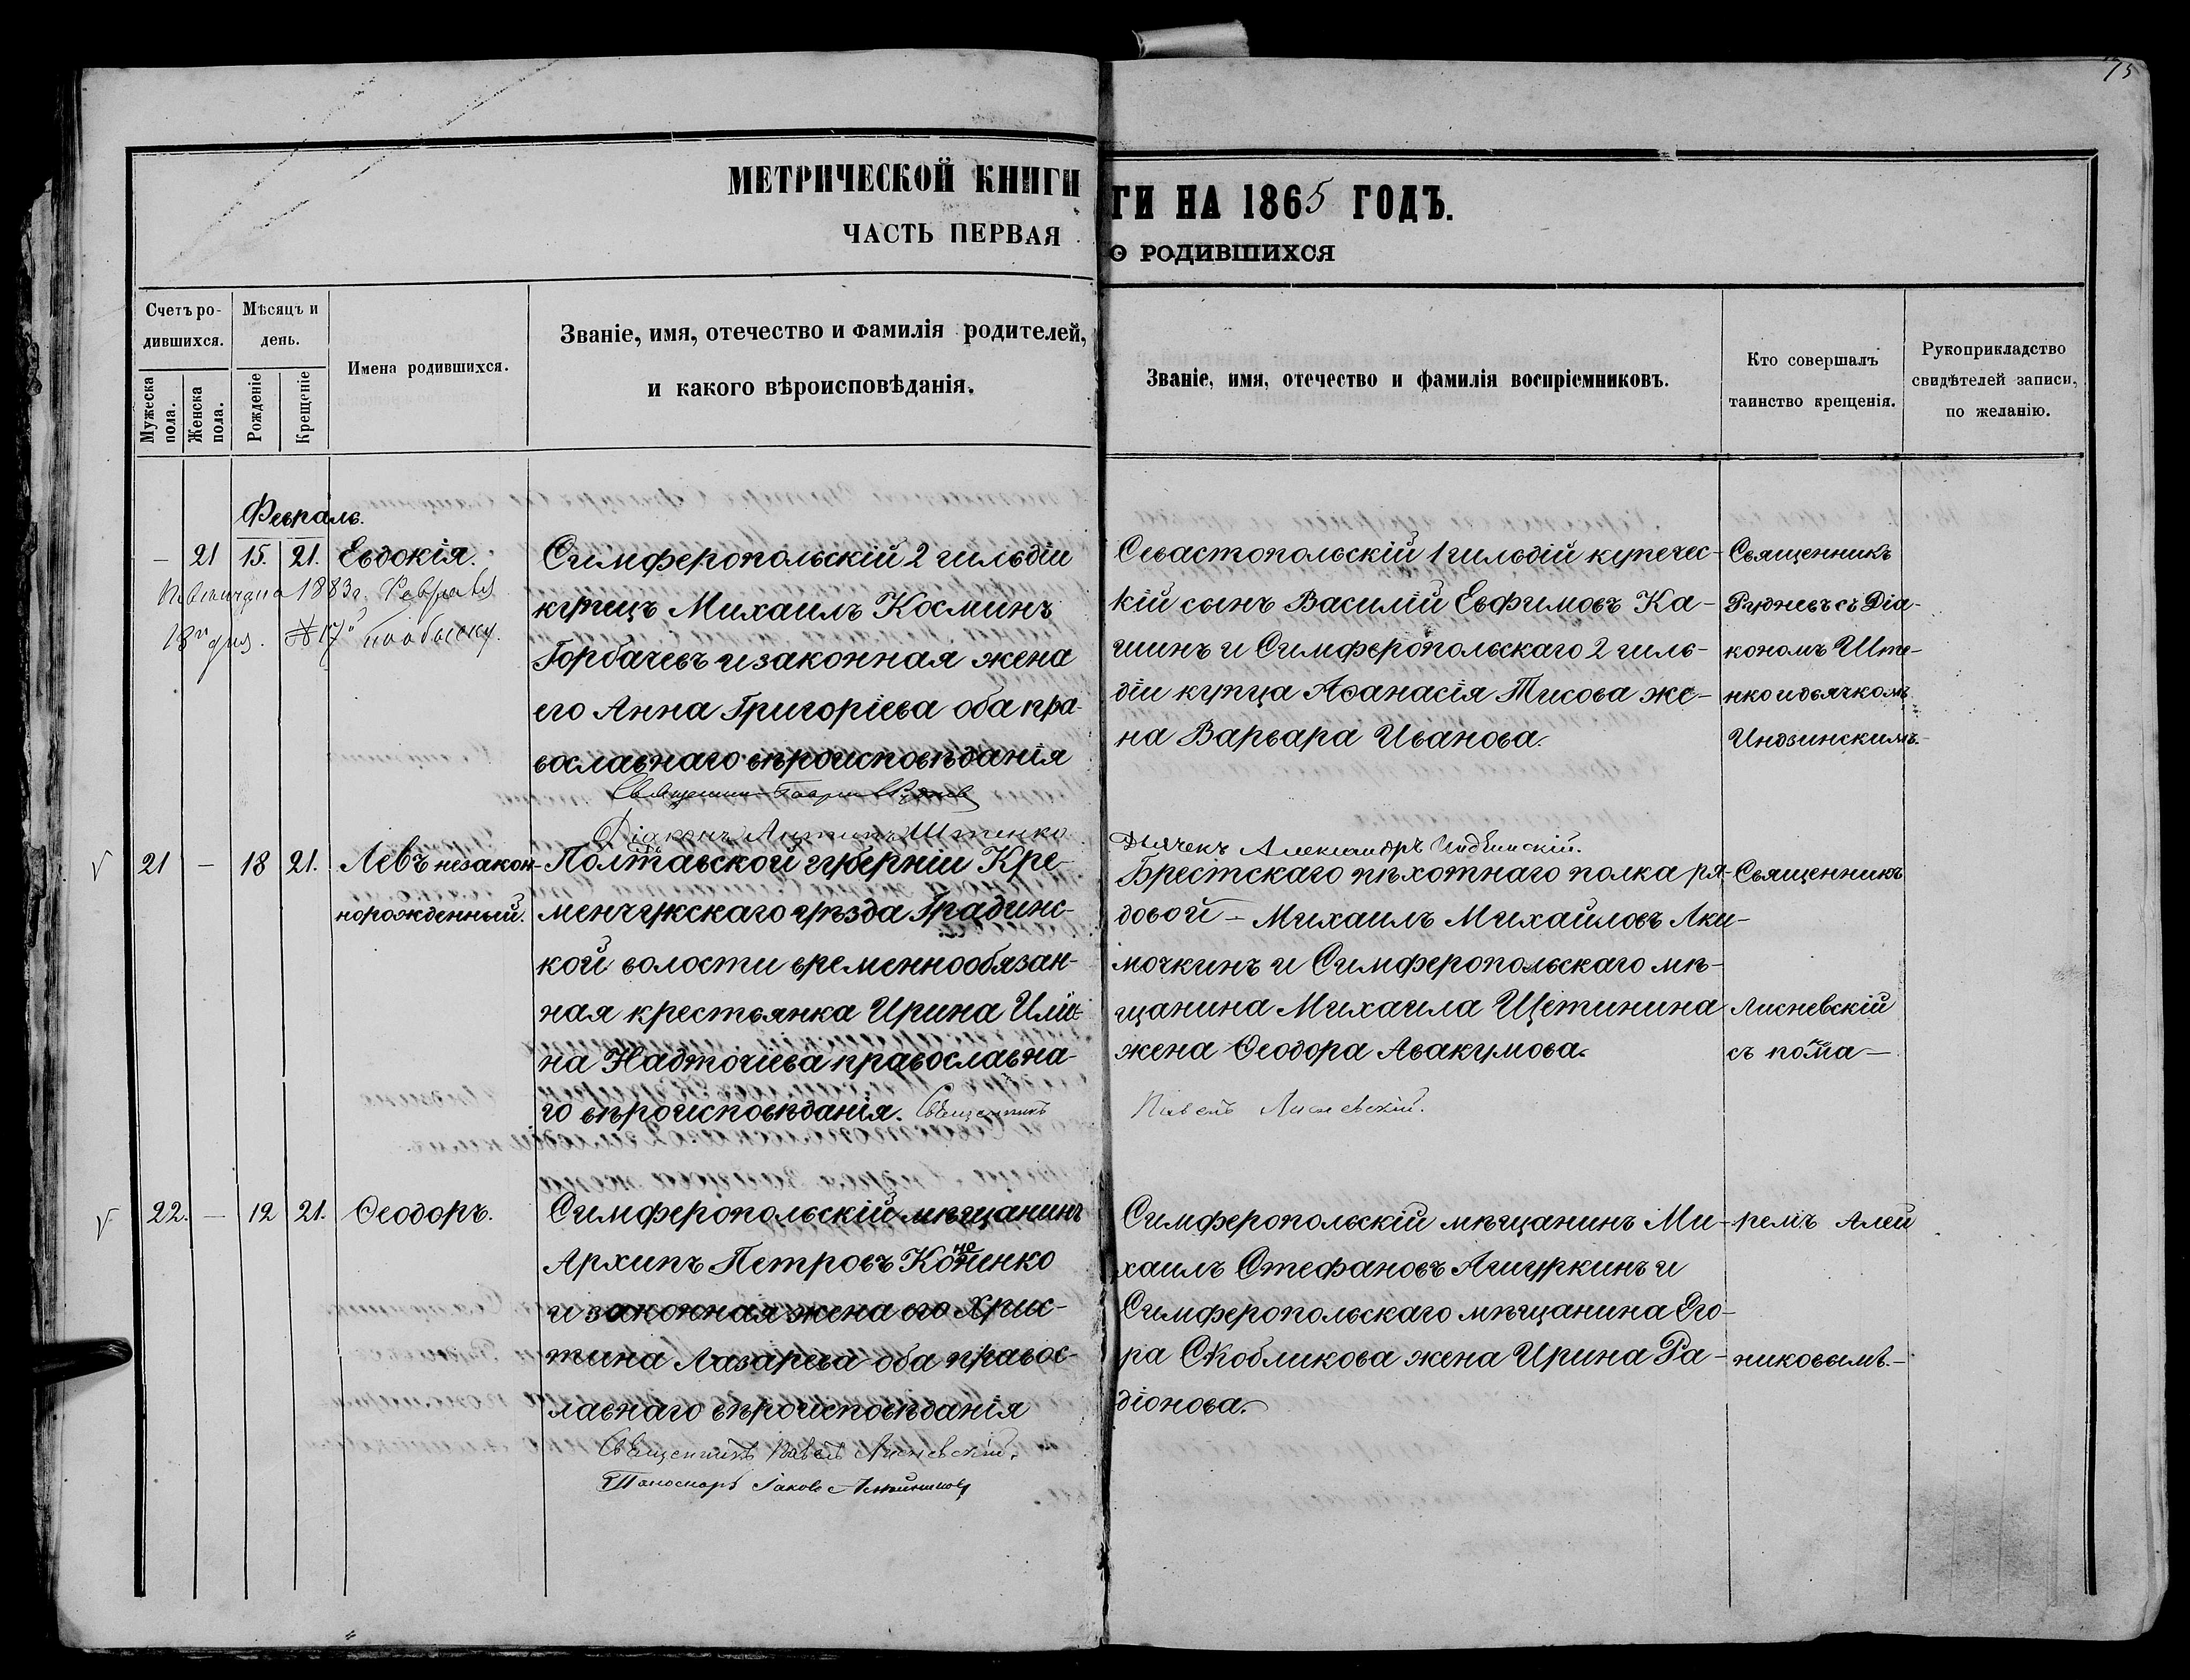 75
МЕТРИЧЕСКОЙ КНИГИ
ЧАСТЬ ПЕРВАЯ
ГИ НА 1865 ГОДЪ.
О РОДИВШИХСЯ
Счетъ ро-
дившихся.
Мужеска
пола.
Женска
пола.
Мѣсяцъ и
день.
Рожденіе
Крещеніе
Имена родившихся.
Званіе, имя, отечество и фамилія родителей,
и какого вѣроисповѣданія.
Званіе, имя, отечество и фамилія воспріемниковъ.
Кто совершалъ
таинство крещенія.
Рукоприкладство
свидѣтелей записи,
по желанію.
Февраль.
— 21 15. 21. Евдокія.
1883г. Февраля
18го дня. №17й по обыску.
Симферопольскій 2 гильдіи
купецъ Михаилъ Косминъ
Горбачевъ и законная жена
его Анна Григоріева оба пра-
вославнаго вѣроисповѣданія
Діаконъ Штенко
Севастопольскій 1 гильдій купечес-
кій сынъ Василій Евфимовъ Ка-
шинъ и Симферопольскаго 2 гиль-
діи купца Аѳанасія Тисова же-
на Варвара Иванова.
Дьячекъ Александръ
Священникъ
Рудневъ съ Діа-
кономъ Ште-
нко и дьячкомъ
Индзинскимъ.
21 — 18 21. Левъ незакон-
норожденный.
Полтавской губерніи Кре-
менчукскаго уѣзда Градинс-
кой волости временнообязан-
ная крестьянка Ирина Ильи-
на Надточіева православна-
го вѣроисповѣданія. Священникъ
Брестскаго пѣхотнаго полка ря-
довой — Михаилъ Михайловъ Аки-
мочкинъ и Симферопольскаго мѣ-
щанина Михаила Щетинина
жена Ѳеодора Авакумова.
Павелъ Лисневскій.
Священникъ
Лисневскій
съ понома—
22. — 12 21. Ѳеодоръ.
Симферопольскій мѣщанинъ
Архипъ Петровъ Кононенко
и законная жена его Хрис-
тина Лазарева оба правос-
лавнаго вѣроисповѣданія
Священникъ Павелъ Лисневскій.
Паномарь Іаковъ
Симферопольскій мѣщанинъ Ми-
хаилъ Стефановъ Агигуркинъ и
Симферопольскаго мѣщанина Его-
ра Скобликова жена Ирина Ра-
діонова.
ремъ Алей
никовымъ.—